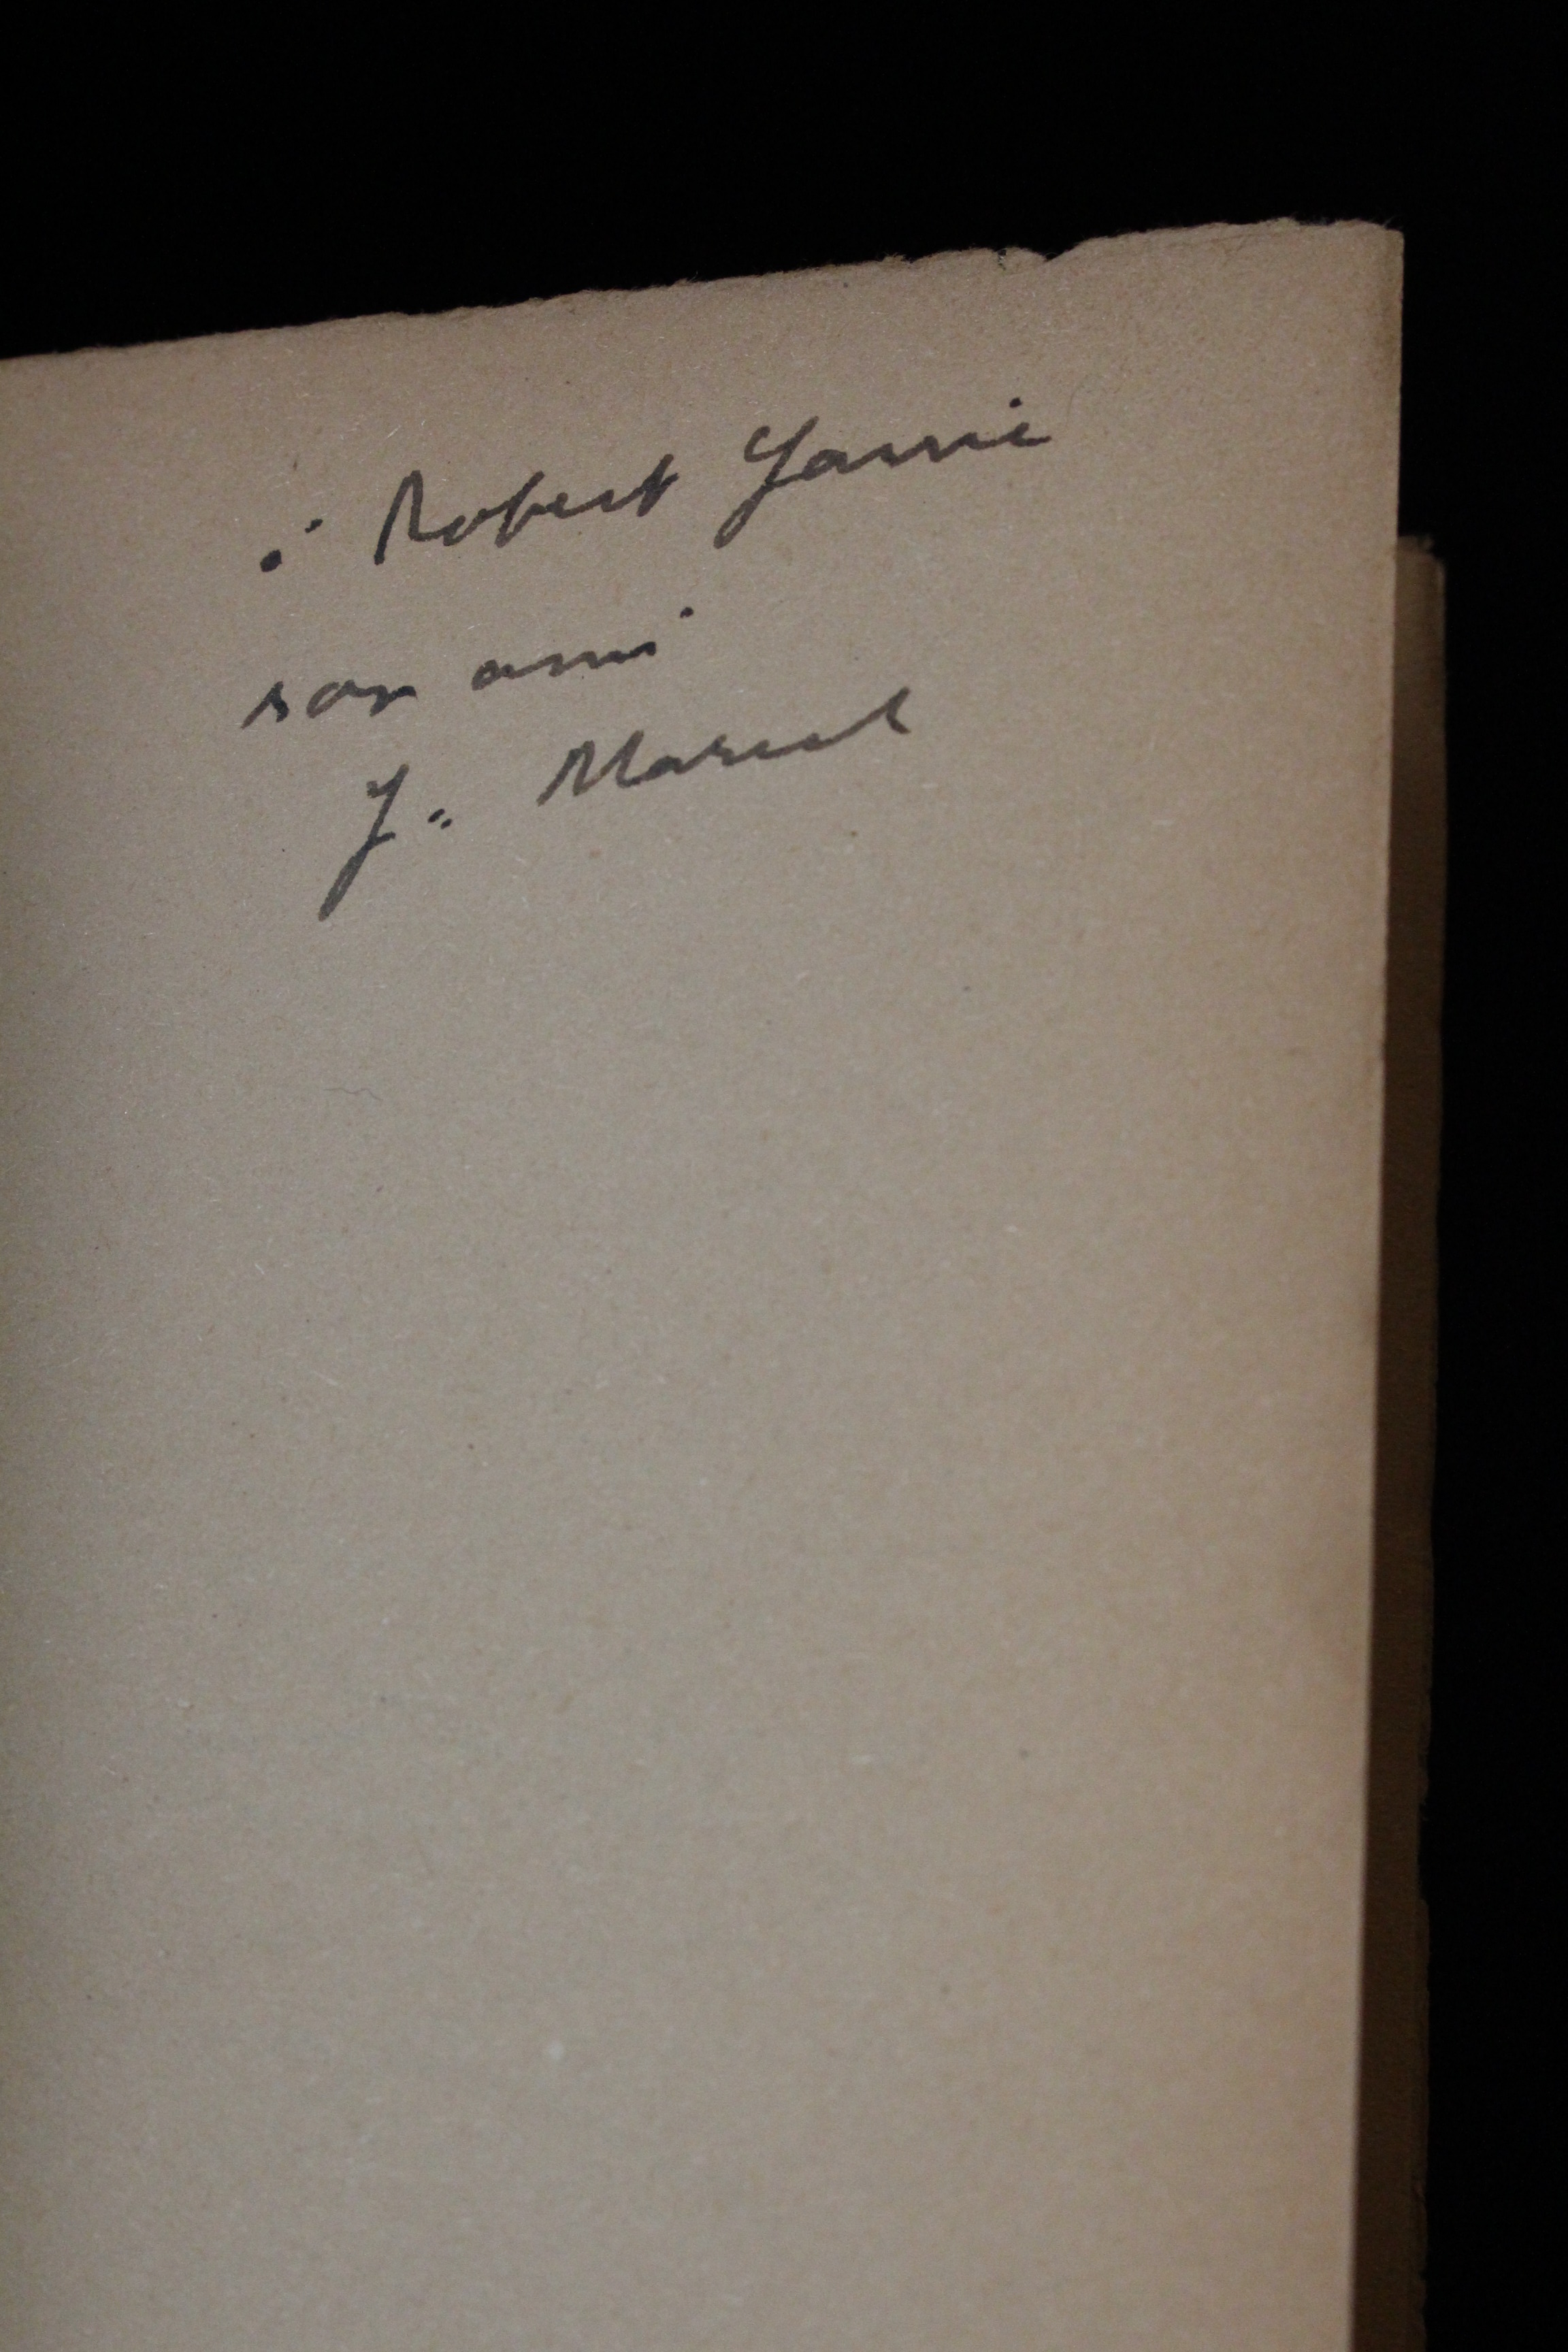 à Robert Yarvic
son ami
J. Marcel